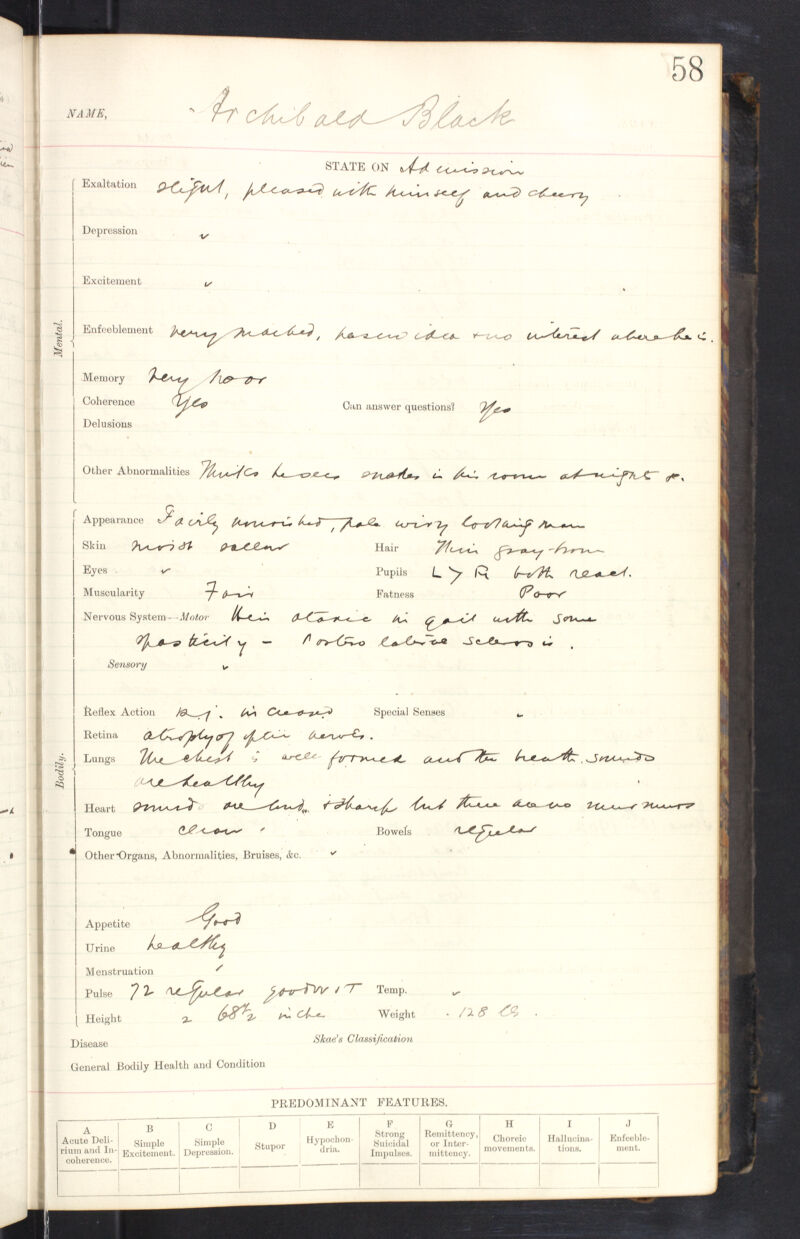 58
NAME, Archibald Black
STATE ON Admission
Mental.
Exaltation slight, pleased with himself and cheery
Depression
Excitement
Enfeeblement Very marked, has no idea + no interest where he is.
Memory Very poor
Coherence Yes Can answer questions? Yes
Delusions
Other Abnormalities Thinks he sees snakes in his room at night &.
Bodily.
Appearance Fairly nourished, pale wiry looking man
Skin moist sallow Hair Thin gray-brown
Eyes Pupils L > R both react.
Muscularity Fair Fatness Poor
Nervous System—Motor He is ataxic in gait with some
spasticity – Postero lateral sclerosis.
Sensory
Reflex Action k.j. increased Special Senses
Retina atrophy of optic nerves.
Lungs The chest is well formed and the breath sounds
are healthy
Heart sounds are loud + sharp but there are no murmurs
Tongue clean Bowels regular
Other Organs, Abnormalities, Bruises, &c.
Appetite Good
Urine healthy
Menstruation
Pulse 72 regular good V + T Temp.
Height 68½ inches Weight 128 lbs.
Disease Skae's Classification
General Bodily Health and Condition
PREDOMINANT FEATURES.
A B C D E F G H I J
Acute Deli-
rium and In-
coherence. Simple
Excitement. Simple
Depression. Stupor Hypochon-
dria. Strong
Suicidal
Impulses. Remittency,
or Inter-
mittency. Choreic
movements. Hallucina-
tions. Enfeeble-
ment.